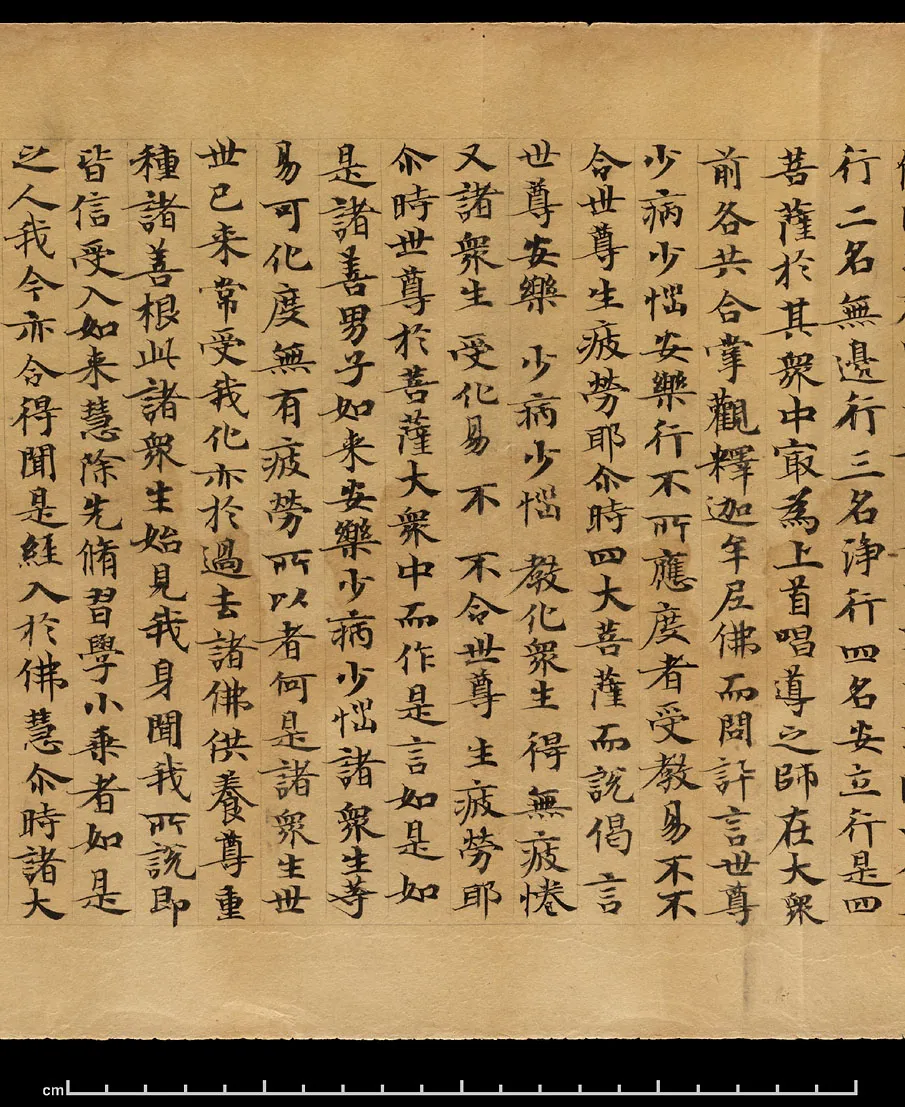 行二名無邊行三名淨行四名安立行是四
菩薩於其衆中冣為上首唱導之師在大衆
前各共合掌觀釋迦牟尼佛而問訊言世尊
少病少惱安樂行不所應度者受教易不不
令世尊生疲勞耶尒時四大菩薩而說偈言
世尊安樂 少病少惱 教化衆生 得無疲惓
又諸衆生 受化易不 不令世尊 生疲勞耶
尒時世尊於菩薩大衆中而作是言如是如
是諸善男子如来安樂少病少惱諸衆生等
易可化度無有疲勞所以者何是諸衆生世
世已来常受我化亦於過去諸佛供養尊重
種諸善根此諸衆生始見我身聞我所說即
皆信受入如来慧除先脩習學小乗者如是
之人我今亦令得聞是經入於佛慧尒時諸大
cm